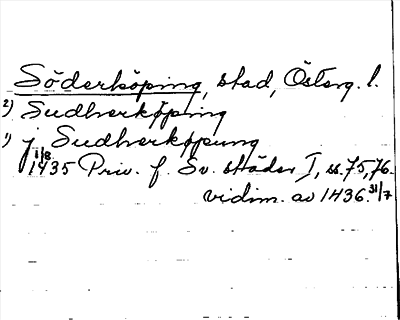 Söderköping, stad, Österg. l.
2) Sudherköping
1) j Sudherköpung
1/8 1435 Priv. f. Sv. städer I, ss. 75, 76.
vidim. av 1436 31/7